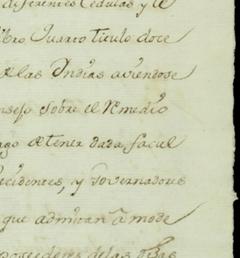 diferentes Cedulas y le
libro Quarto titulo doce
de las Indias aviendose
onsejo sobre el Remedio
ago de tener dada facul
recidentes, y Governadores
que admitan à mode
poseedores de las dhas